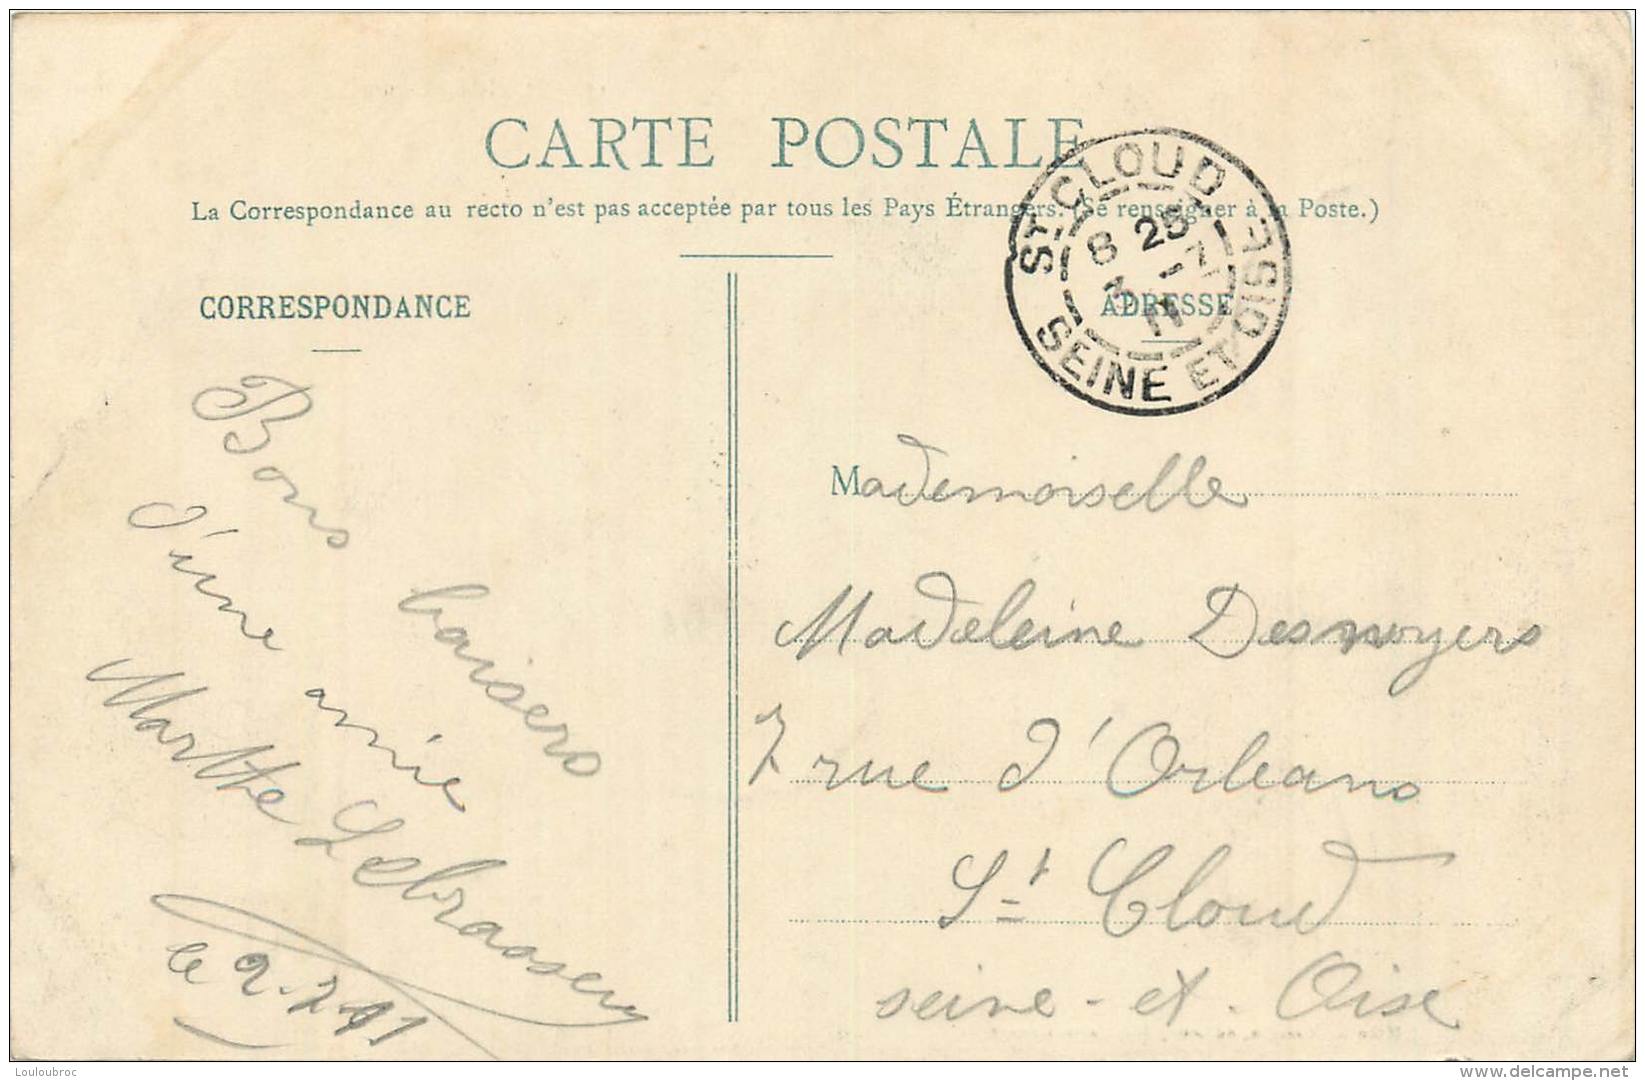 CARTE POSTALE
La Correspondance au recto n'est pas acceptée par tous les Pays Étrangers. (Se renseigner à la Poste.)
CORRESPONDANCE
ADRESSE
ST CLOUD
8 25
3 -7
11
SEINE ET OISE
Bons baisers
d'une amie
Marthe Lebrasseur
le 2.7.11
Mademoiselle
Madeleine Desnoyers
7 rue d'Orleans
St Cloud
seine-et-Oise
Louloubroc
delcampe.net